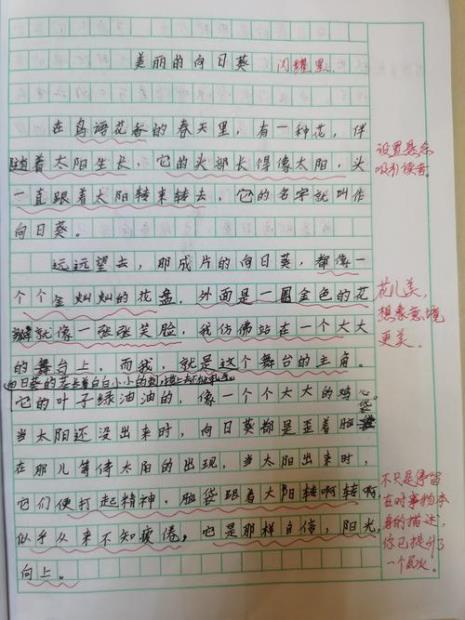 美丽的向日葵 闪耀星
在鸟语花香的春天里，有一种花，伴
随着太阳生长，它的头部长得像太阳，头
一直跟着太阳转来转去，它的名字就叫作
向日葵。
设置悬念
吸引读者
远远望去，那成片的向日葵，都像一
个个金灿灿的花盘。外面是一圆金色的花
就像一张张笑脸，我仿佛站在一个大大
的舞台上，而我，就是这个舞台的主角。
花儿美，
想象意境
更美。
向日葵的茎长着白白小小的刺
它的叶子绿油油的，像一个个大大的鸡
当太阳还没出来时，向日葵都是歪着脑
在那儿等待太阳的出现，当太阳出来时，
它们便打起精神，脑袋跟着太阳转啊转啊
似乎从来不知疲倦，它是那样自信，阳光
向上。
不只是停留
在对事物本
身的描述，
你已提升了
一个层次。